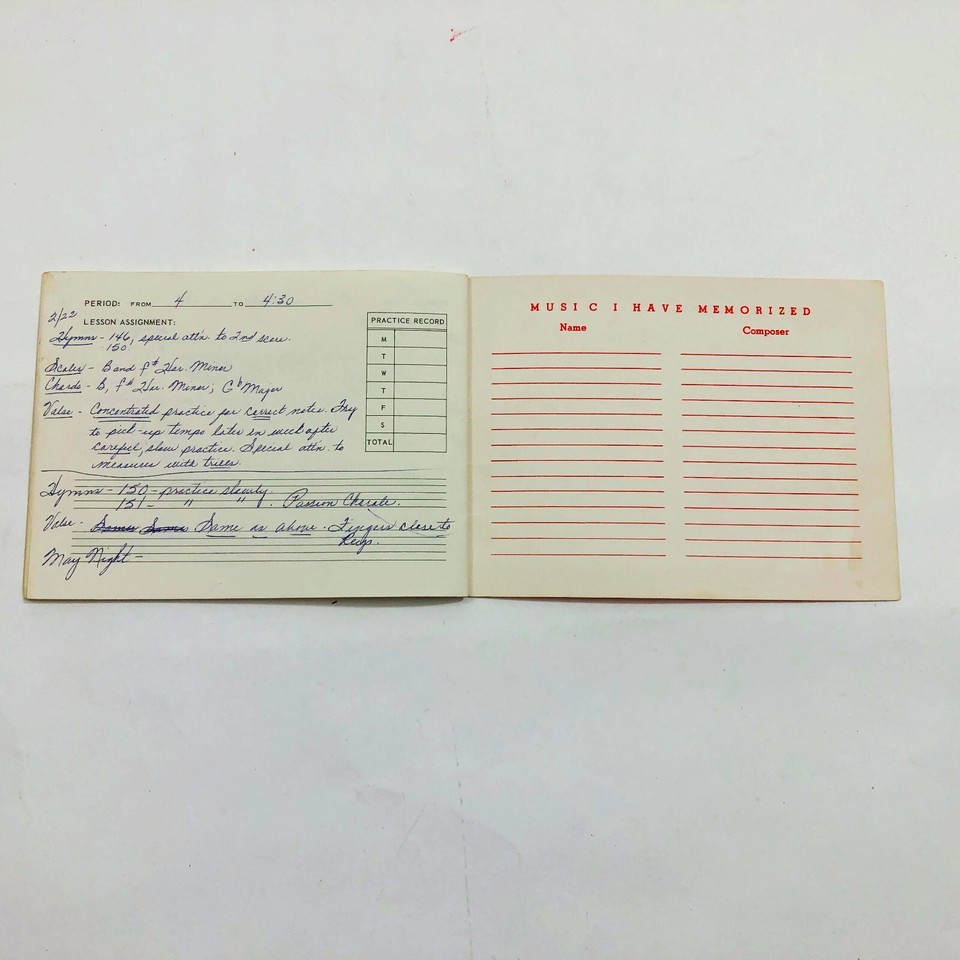 PERIOD: FROM 4 TO 4:30
2/22
LESSON ASSIGNMENT:
Hymns - 146, special attn. to 2nd score.
150.
Scales - B and f# Har. Minor
Chords - B, f# Har. Minor; Gb Major
Valse - Concentrated practice for correct notes. Try
to pick-up tempo later in week after
careful, slow practice. Special attn. to
measures with trills.
Hymns - 150 - practice slowly.
151 - " " . Passion Chorale.
Valse - Same Same Same as above. Fingers close to
keys.
May Night -
PRACTICE RECORD
M
T
W
T
F
S
TOTAL
MUSIC I HAVE MEMORIZED
Name Composer